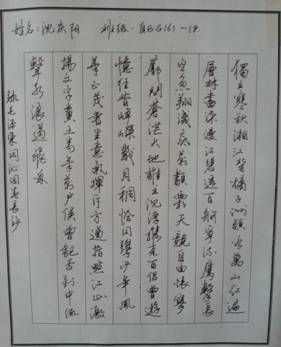 姓名：沈庆阳 班级：
独立寒秋湘江北去橘子洲头看万山红遍
层林尽染漫江碧透百舸争流鹰击长
空鱼翔浅底万类霜天竞自由怅寥
廓问苍茫大地谁主沉浮携来百侣曾游
忆往昔峥嵘岁月稠恰同学少年风
华正茂书生意气挥斥方遒指点江山激
扬文字粪土当年万户侯曾记否到中流
击水浪遏飞舟
录毛泽东词沁园春长沙